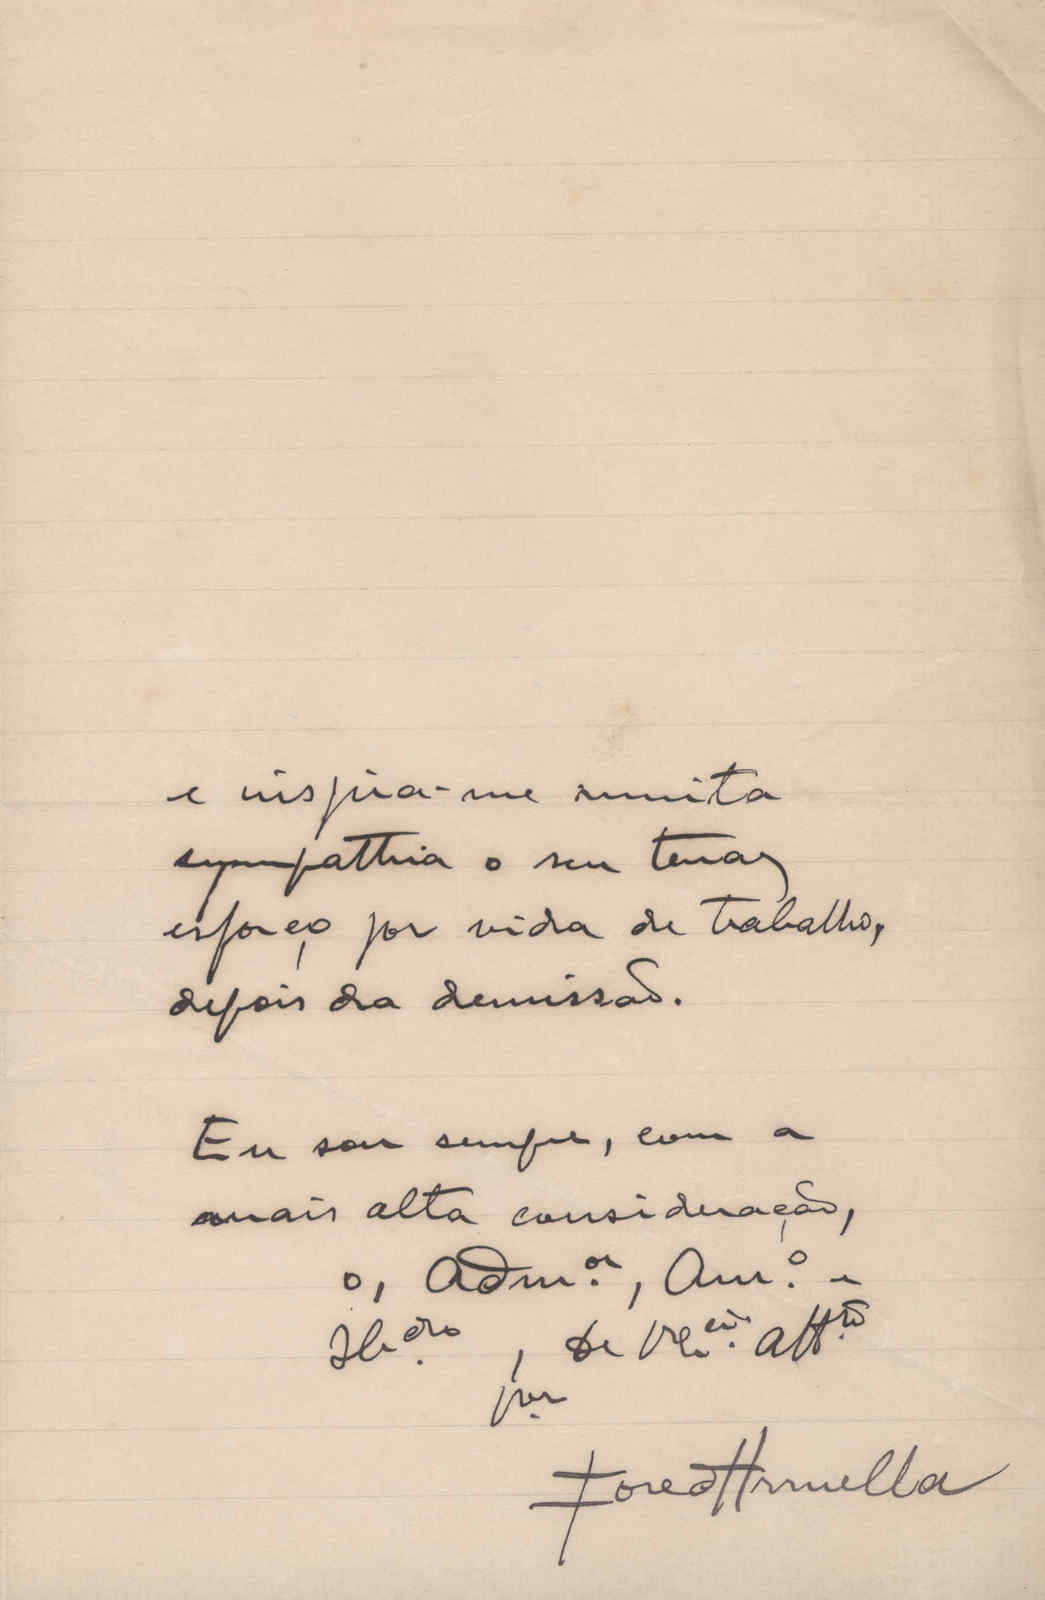 e inspira-me muita
sympathia o seu tenaz
esforço por vida de trabalho,
depois da demissão.
Eu sou sempre, com a
mais alta consideração,
o, Adm.or, Am.o e
de V. Ex.cia att.to